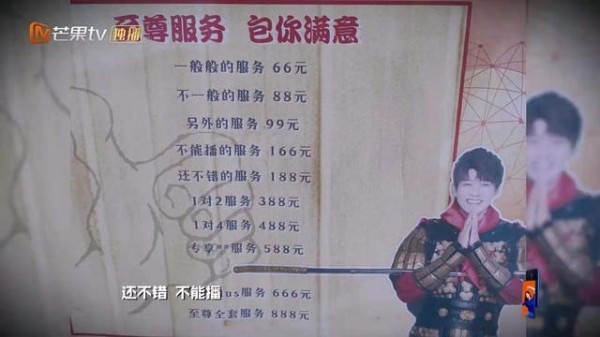 芒果tv 独播
至尊服务 包你满意
一般般的服务 66元
不一般的服务 88元
另外的服务 99元
不能播的服务 166元
还不错的服务 188元
1对2服务 388元
1对4服务 488元
专享**服务 588元
us服务 666元
至尊全套服务 888元
还不错 不能播